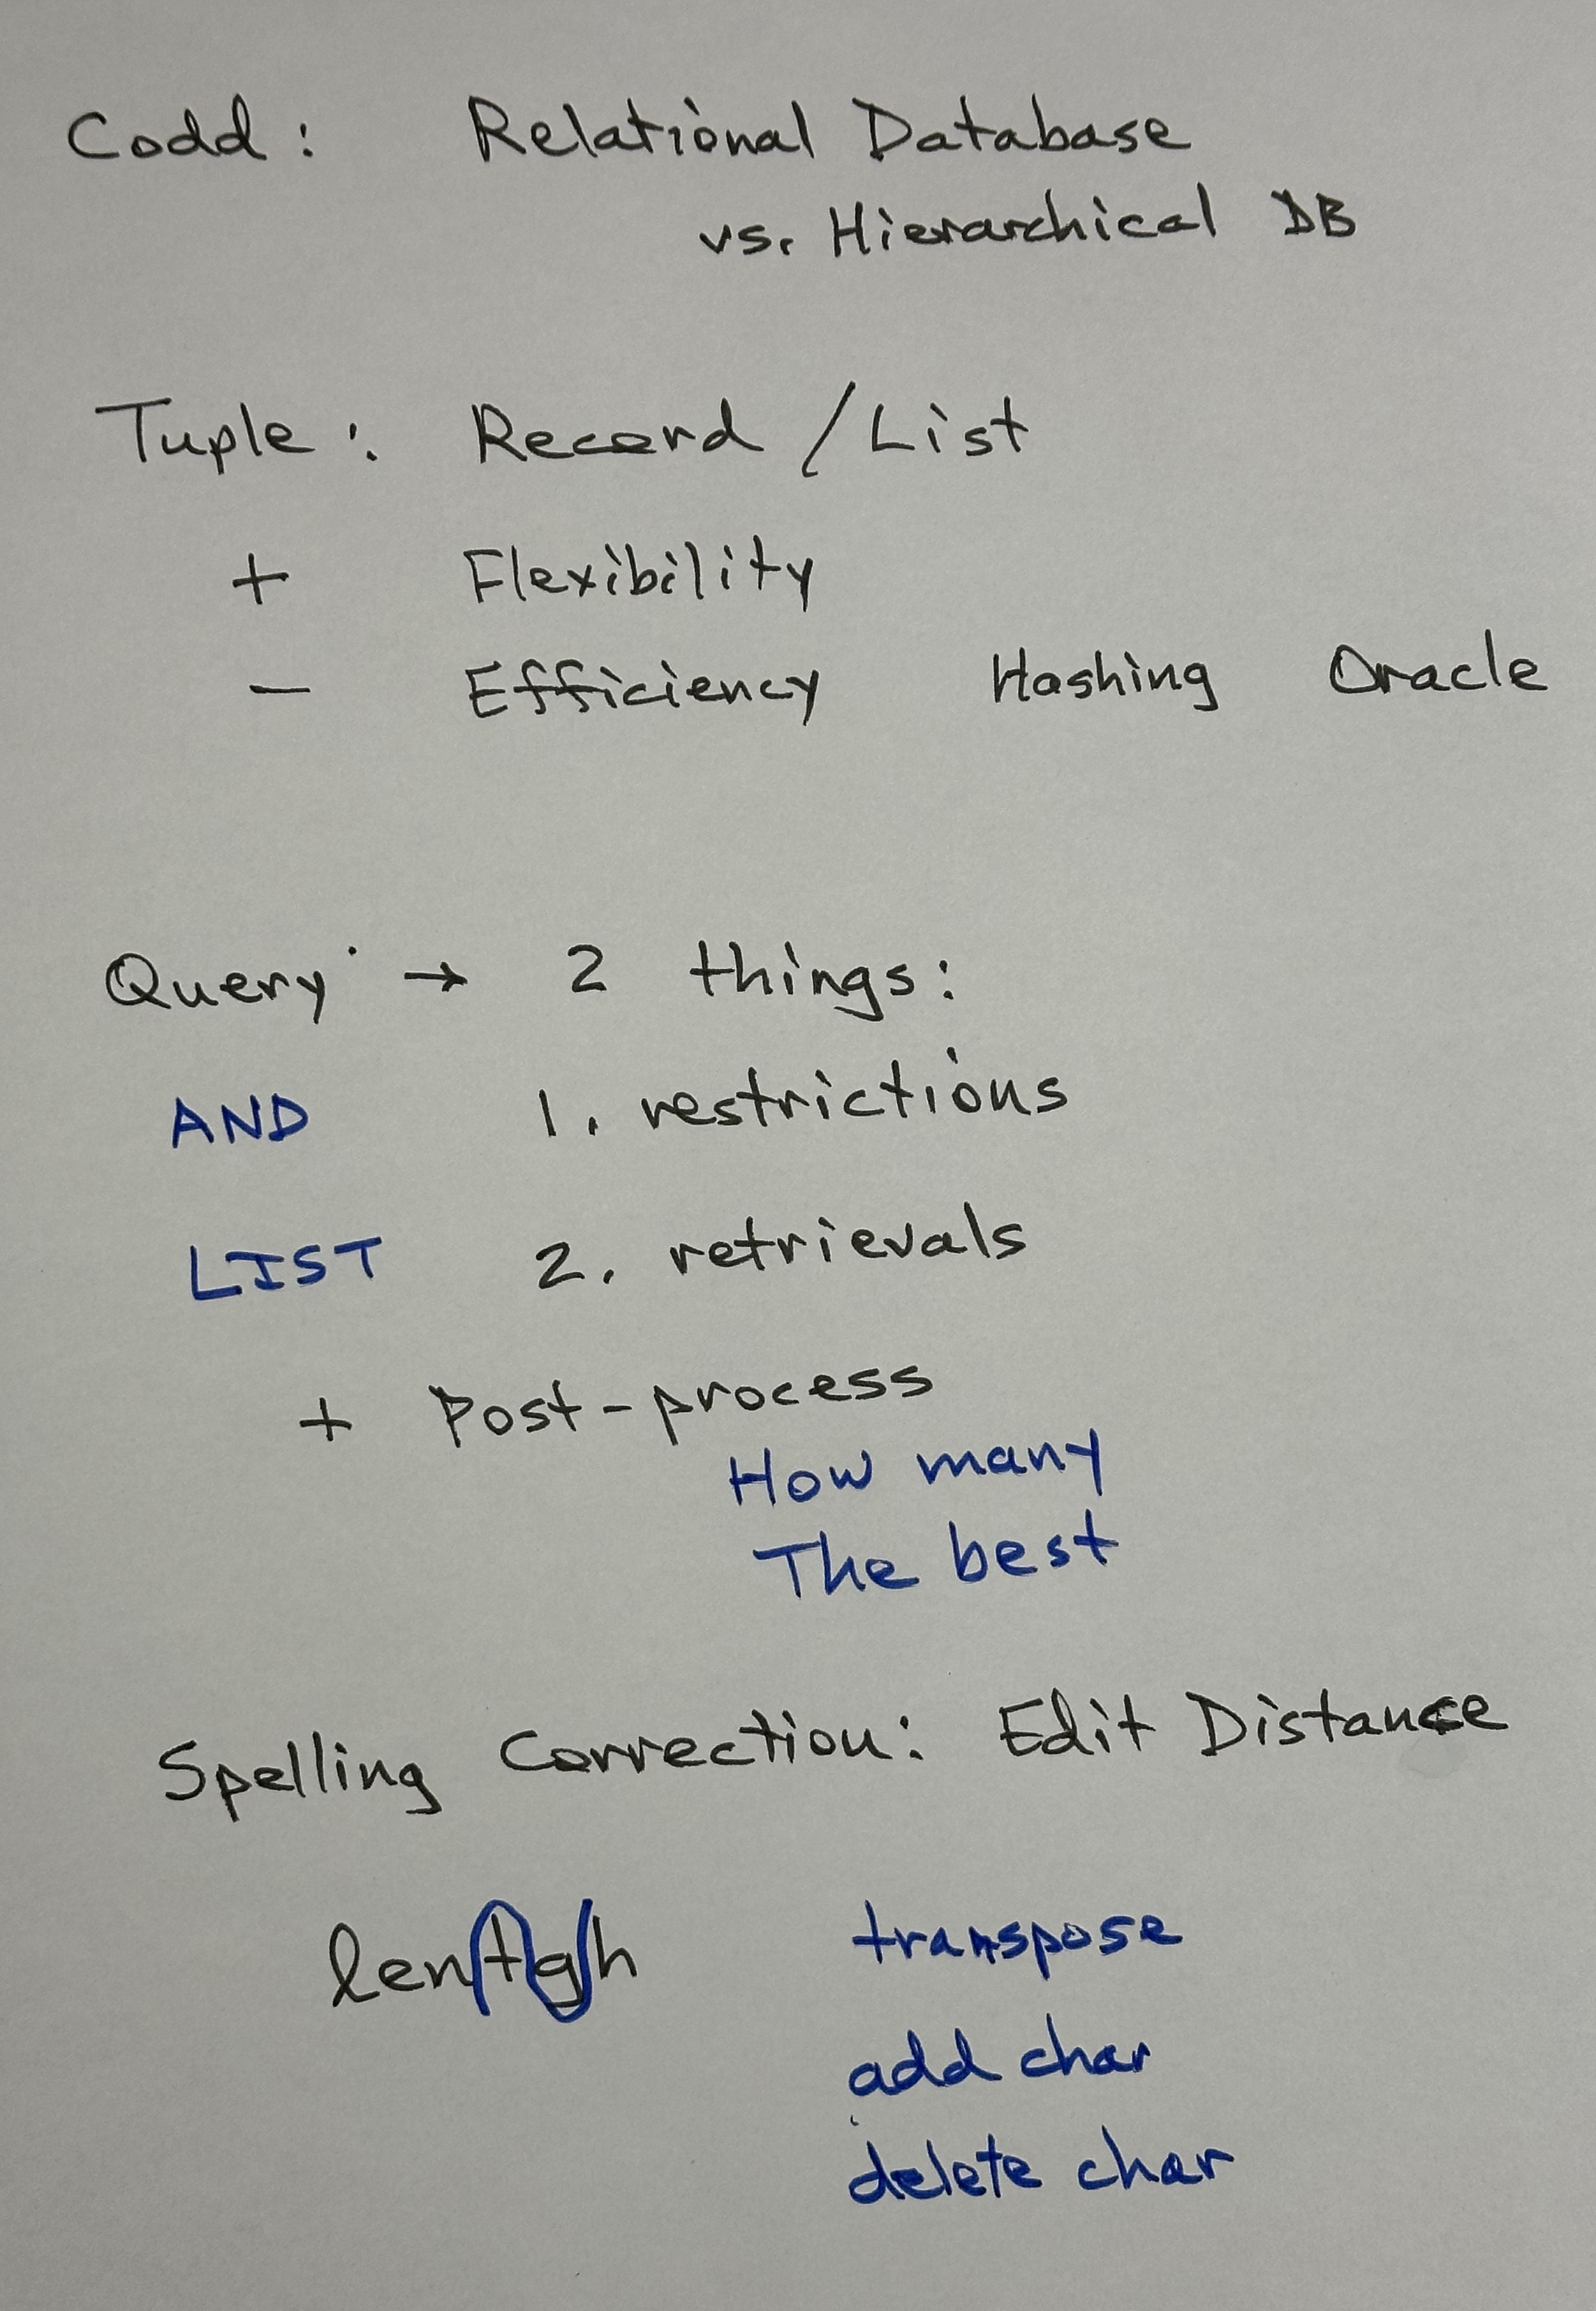 Codd: Relational Database
vs. Hierarchical DB
Tuple: Record / List
+ Flexibility
- Efficiency Hashing Oracle
Query → 2 things:
AND 1. restrictions
LIST 2. retrievals
+ Post-process
How many
The best
Spelling Correction: Edit Distance
lentgh transpose
add char
delete char